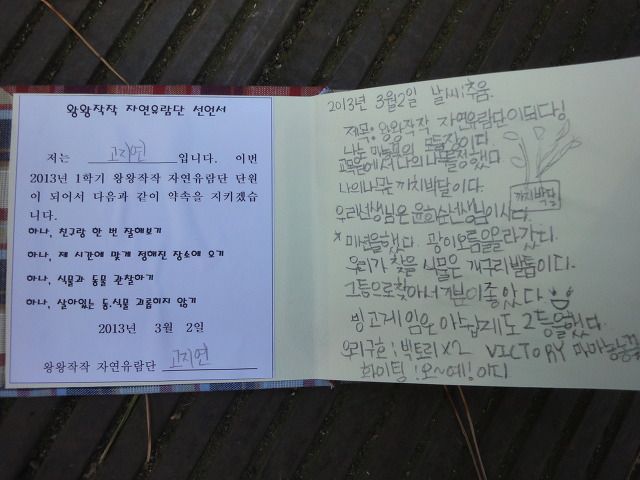 왕왕작작 자연유람단 선언서
저는 고지연 입니다. 이번
2013년 1학기 왕왕작작 자연유람단 단원
이 되어서 다음과 같이 약속을 지키겠습
니다.
하나, 친구랑 한 번 잘해보기
하나, 제 시간에 맞게 정해진 장소에 오기
하나, 식물과 동물 관찰하기
하나, 살아있는 동.식물 괴롭히지 않기
2013년 3월 2일
왕왕작작 자연유람단 고지연
2013년 3월2일 날씨:추음.
제목: 왕왕작작 자연유람단이되다!
나는 모둠장이다
에서 나의나무를정했다
나의나무는 까치박달이다.
까치박달
우리선생님은 윤희순선생님이시다.
*미션을했다. 광이오름을올라갔다.
우리가 찾을 식물은 개구리발톱이다.
그등으로찾아서기분이좋았다
빙고게임은 아쉽게도 2등을했다.
우리구호! 빅토리 X2 VICTORY
화이팅! 오~예! 아디